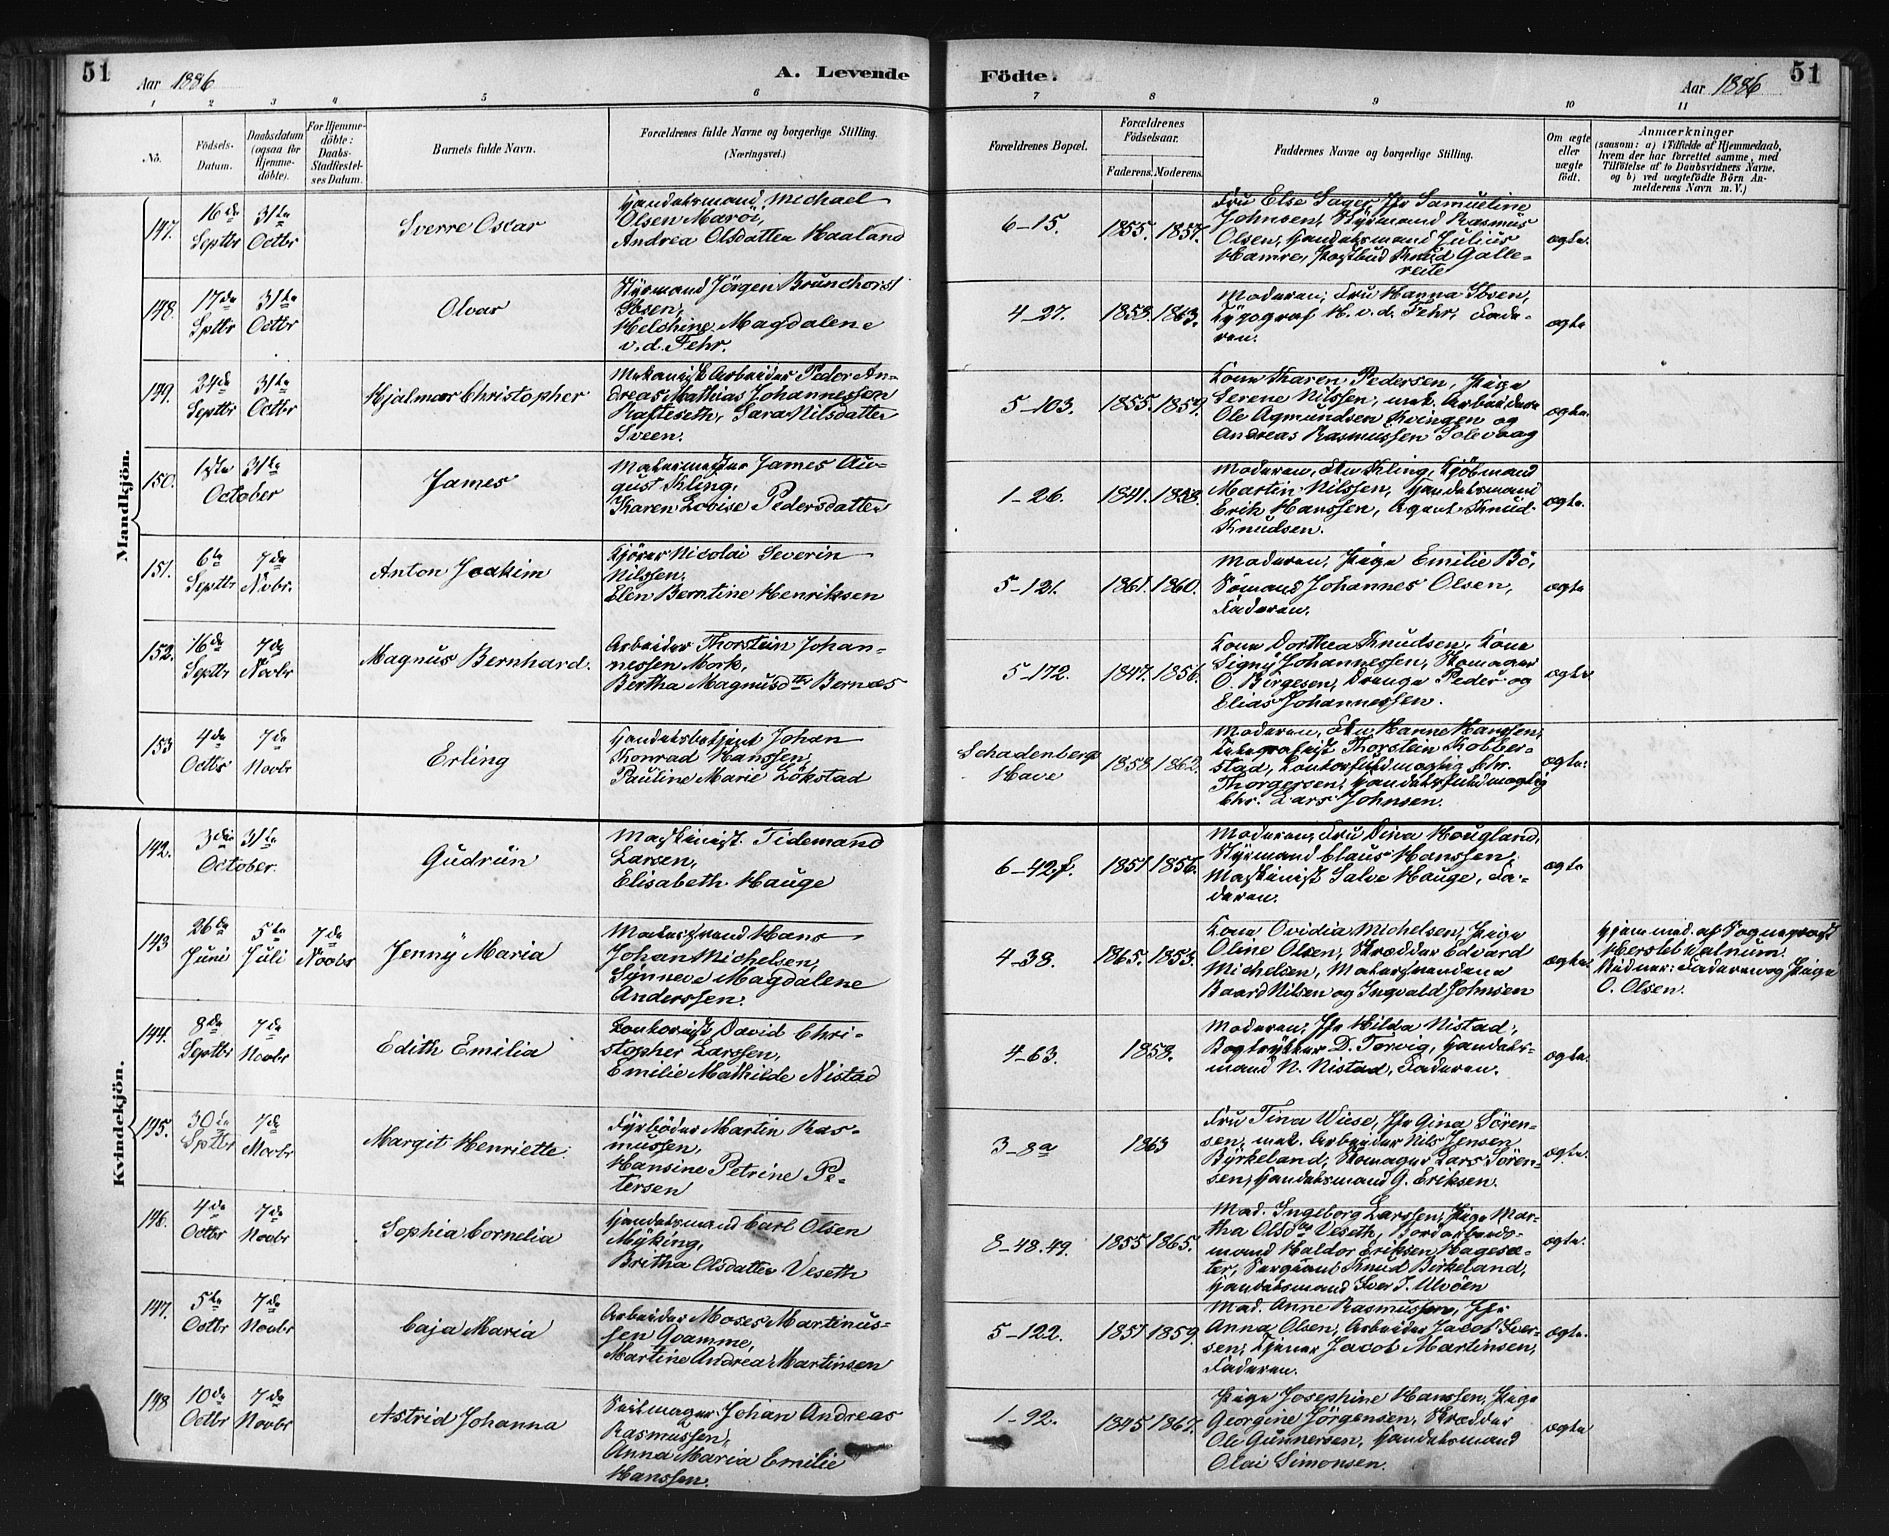 51
Aar 1886
A. Levende
Födte.
Aar 1886
51
1 2 3 4 5 6 7 8 9 10 11
No.
Födsels-
Datum.
Daabsdatum
(ogsaa for
Hjemme-
döbte).
For Hjemme-
döbte:
Daabs-
Stadfæstel-
ses Datum.
Barnets fulde Navn.
Forældrenes fulde Navne og borgerlige Stilling.
(Næringsvei.)
Forældrenes Bopæl.
Forældrenes
Födselsaar.
Faderens. Moderens.
Faddernes Navne og borgerlige Stilling.
Om ægte
eller
uægte
födt.
Anmærkninger
(saasom: a) i Tilfælde af Hjemmedaab,
hvem der har forrettet samme, med
Tilföielse af to Daabsvidners Navne,
og b) ved uægtefödte Börn An-
melderens Navn m. V.)
Mandkjön.
147.
16de
Septbr
31te
Octbr
Sverre Oscar
Handelsmand Michael
Olsen Maröi,
Andrea Olsdatter Haaland
6-15.
1855. 1857.
Fru Else Sager, Jfr Samueline
Johnsen, Styrmand Rasmus
Olsen, Handelsmand Julius
Hamre, Postbud Knud Galle-
reite
ægte.
148.
17de
Sptbr
31te
Octbr
Olvar
Styrmand Jörgen Brunchorst
Ibsen,
Helchine Magdalene
v.d. Fehr.
4-27.
1853. 1863.
Moderen, Fru Hanna Ibsen,
Typograf H. v. d. Fehr, Fade-
ren.
ægte
149.
24de
Septbr
31te
Octbr
Hjalmar Christopher
Mekanisk Arbeider Peder An-
dreas Mathias Johannessen
Rafteseth, Sara Nilsdatter
Sveen.
5-103.
1855. 1859.
Kone Karen Pedersen, Pige
Serene Nilssen, mek. Arbeidere
Ole Agmundsen Kvingen og
Andreas Rasmussen Solevaag
ægte.
150.
1ste 31te
October
James
Malermester James Au-
gust Kling,
Karen Lovise Pedersdatter
1-26.
1841. 1858.
Moderen, Fru Kling, Kjöbmand
Martin Nilssen, Handelsmand
Erik Hanssen, Agent Knud
Knudsen.
ægte.
151.
6te
Septbr
7de
Novbr.
Anton Joakim
Kjører Nicolai Severin
Nilssen,
Elen Berntine Henriksen
5-121.
1861. 1860.
Moderen, Pige Emilie Bö,
Sömand Johannes Olsen,
Faderen.
ægte
152.
16de
Septbr
7de
Novbr
Magnus Bernhard.
Arbeider Thorstein Johan-
nessen Mork,
Bertha Magnusdtr Bernæs
5-172.
1847. 1856.
Kone Dorthea Knudsen, Kone
Signy Johannessen, Skomager
O. Birgesen, Drenge Peder og
Elias Johannessen.
ægte
153
4de
Octbr
7de
Novbr
Erling
Handelsbetjent Johan
Konrad Hanssen,
Pauline Marie Lökstad
Schadenbergs
Have
1858 1862.
Moderen, Fru Hanne Hanssen,
Telegrafist Thorstein Kobber-
stad, Kontorfuldmægtig Chr.
Thorgersen, Handelsfuldmægtig
Chr. Lars Johnsen.
ægte.
Kvindekjön.
142.
3die 31te
October.
Gudrun
Maskinist Tidemand
Larsen,
Elisabeth Hauge
6-42.f.
1851 1856.
Moderen, Fru Dina Hougland,
Styrmand Claus Hanssen,
Maskinist Salve Hauge, Fa-
deren.
ægte
143
26de
Juni
5te
Juli
7de
Novbr
Jenny Maria
Malersvend Hans
Johan Michelsen,
Synneve Magdalene
Anderssen.
4-38.
1865. 1853.
Kone Ovidia Michelsen, Pige
Oline Olsen, Skrædder Edvard
Michelsen, Malersvendene
Baard Nilsen og Ingvald Johnsen
ægte.
Hjemmed. af Sogneprest
Hersleb Walnum.
Vidner: Faderen og Pige
O. Olsen.
144.
8de
Septbr
7de
Novbr
Edith Emilia
Kontorist David Chri-
stopher Larssen,
Emilie Mathilde Nistad
4-63.
1858.
Moderen, Jfr Hilda Nistad,
Bogtrykker D. Torvig, Handels-
mand N. Nistad, Faderen.
ægte.
145.
30te
Sptbr
7de
Novbr
Margit Henriette.
Fyrböder Martin Ras-
mussen,
Hansine Petrine Pe-
tersen
3-8a
1863
Fru Tina Wiese, Jfr Gina Sören-
sen, mek. Arbeider Nils Jensen
Byrkeland, Skomager Lars Sören-
sen, Handelsmand G. Eriksen.
ægte.
146.
4de
Octbr
7de
Novbr
Sophia Cornelia
Handelsmand Carl Olsen
Myking,
Britha Olsdatter Veseth
8-48.49.
1855 1865.
Mad. Ingeborg Larssen, Pige Mar-
tha Olsdtr Veseth, Jordarbeids-
mand Haldor Eriksen Hagesæ-
ter, Sergeant Knud Birkeland,
Handelsmand Iver I. Alvöen
ægte.
147.
5te
Octbr
7de
Novbr
Caja Maria
Arbeider Moses Martinus-
sen Qvamme,
Martine Andrea Martinsen
5-122.
1851 1859.
Mad. Anne Rasmussen, Jfr
Anna Olsen, Arbeider Jacob Iver-
sen, Tjener Jacob Martinsen,
Faderen.
ægte.
148
10de
Octbr
7de
Novbr
Astrid Johanna
Seilmager Johan Andreas
Rasmussen,
Anna Maria Emilie
Hanssen.
1-92.
1845 1867.
Pige Josephine Hanssen, Pige
Georgine Jörgensen, Skrædder
Ole Gunnersen, Handelsmand
Olai Simonsen.
ægte